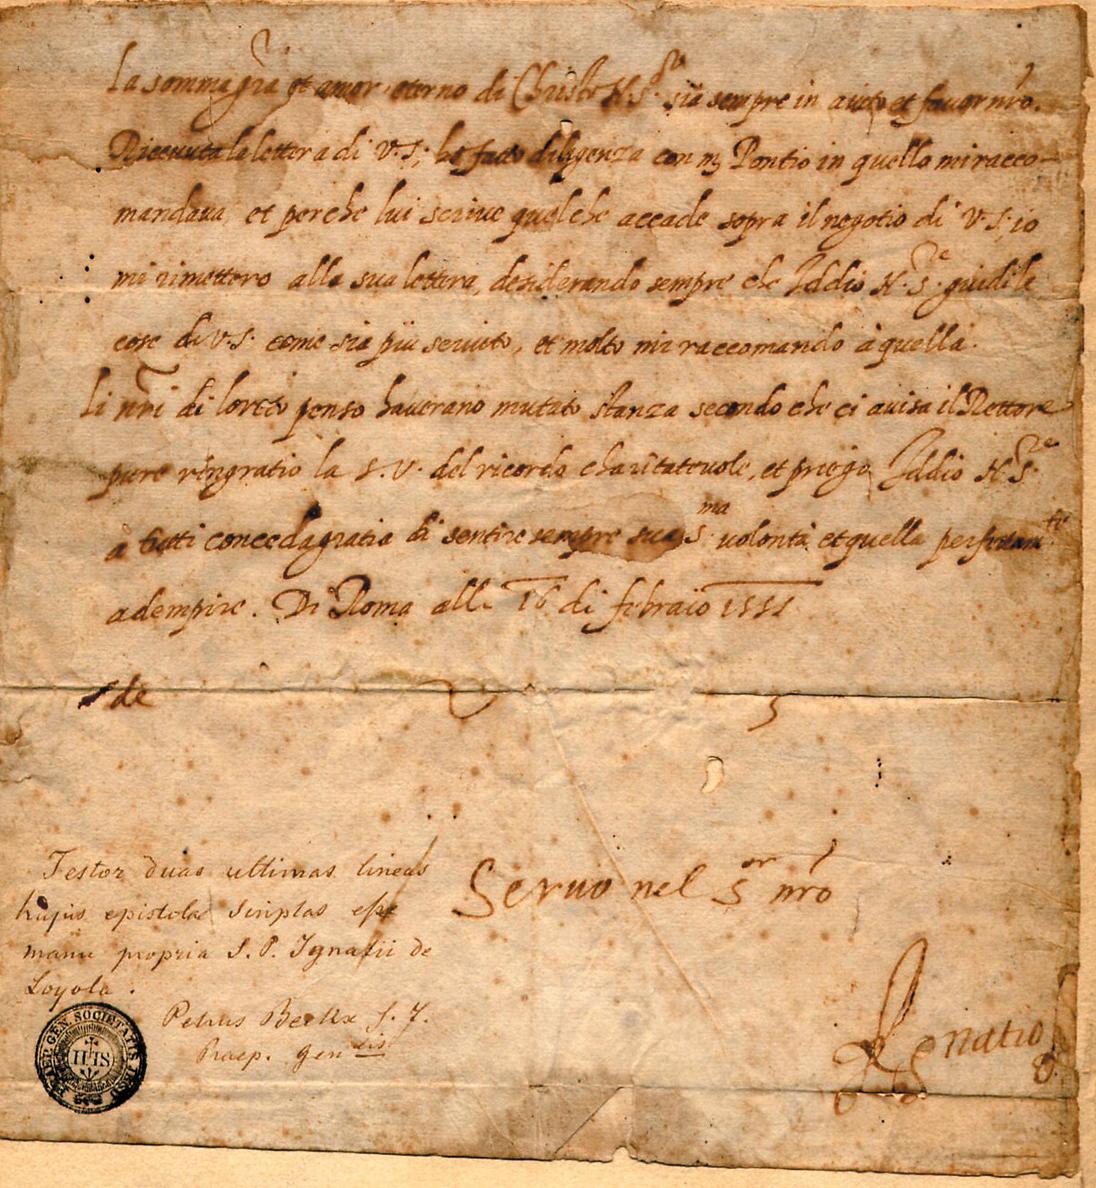 La somma gr̃a et amor eterno di Christo N. S.ʳᵉ sia sempre in aiuto et favor nr̃o.
Riceuuta la lettera di V. S; ho fatto diligenza con mʒ Pontio in quello mi racco-
mandaua, et perche lui scriue quel che accade sopra il negotio di V. S. io
mi rimettero alla sua lettera, desiderando sempre che Iddio N. S.ʳᵉ guidi le
cose di V. S. come sia più seruito, et molto mi raccomando à quella.
Li nr̃i di loreto penso haverano mutato stanza secondo che ci auisa il Rettore
pure ringratio la S. V. del ricordo charitateuole, et priego Iddio N. S.ʳᵉ
à tutti conceda gratia di sentire sempre sua s.ᵐᵃ uolontà et quella perfettamᵗᵉ
adempire. Di Roma alli 16 di febraio 1551
de
Seruo nel Sᵒʳ nr̃o
Ignatio
Testor duas ultimas lineas
hujus epistolae scriptas esse
manu propria S. P. Ignatii de
Loyola.
Petrus Beckx S. J.
Praep. Genˡⁱˢ
PRAEP. GEN. SOCIETATIS IESU
IHS